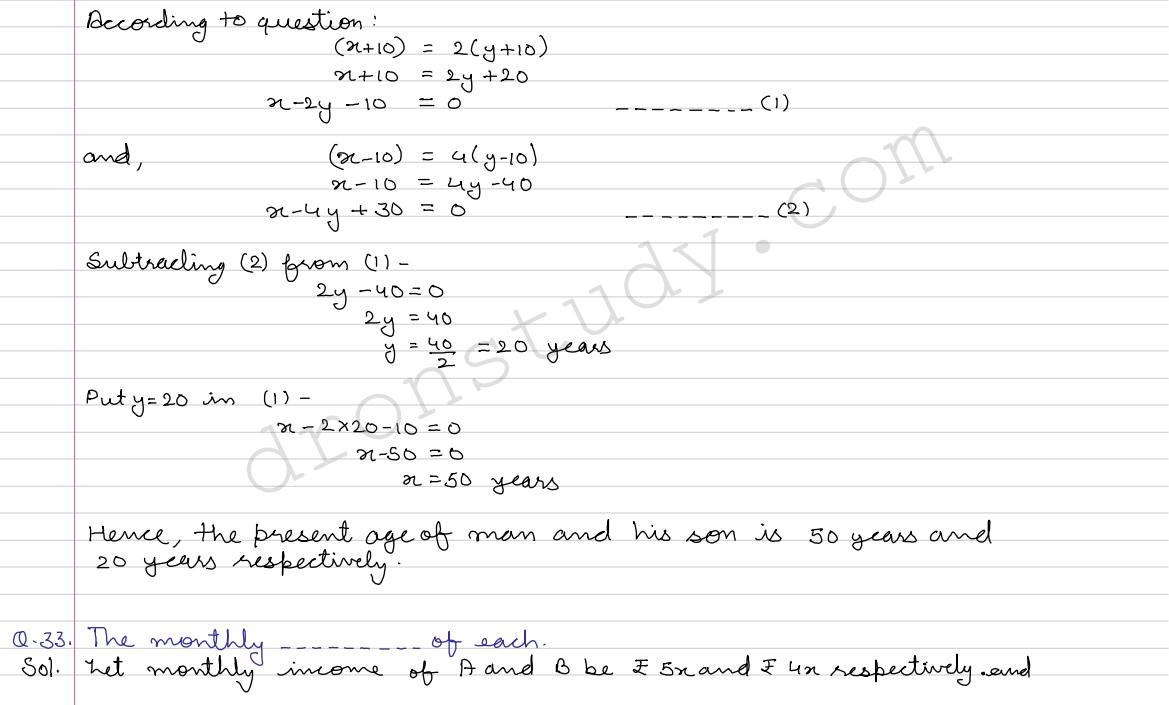 According to question:
(x+10) = 2(y+10)
x+10 = 2y+20
x-2y-10 = 0 --------- (1)
and, (x-10) = 4(y-10)
x-10 = 4y-40
x-4y+30 = 0 --------- (2)
Subtracting (2) from (1) -
2y-40=0
2y = 40
y = 40/2 = 20 years
Put y=20 in (1) -
x-2×20-10 = 0
x-50 = 0
x = 50 years
Hence, the present age of man and his son is 50 years and
20 years respectively.
Q.33. The monthly ---------- of each.
Sol. Let monthly income of A and B be ₹ 5x and ₹ 4x respectively.and
dronstudy.com